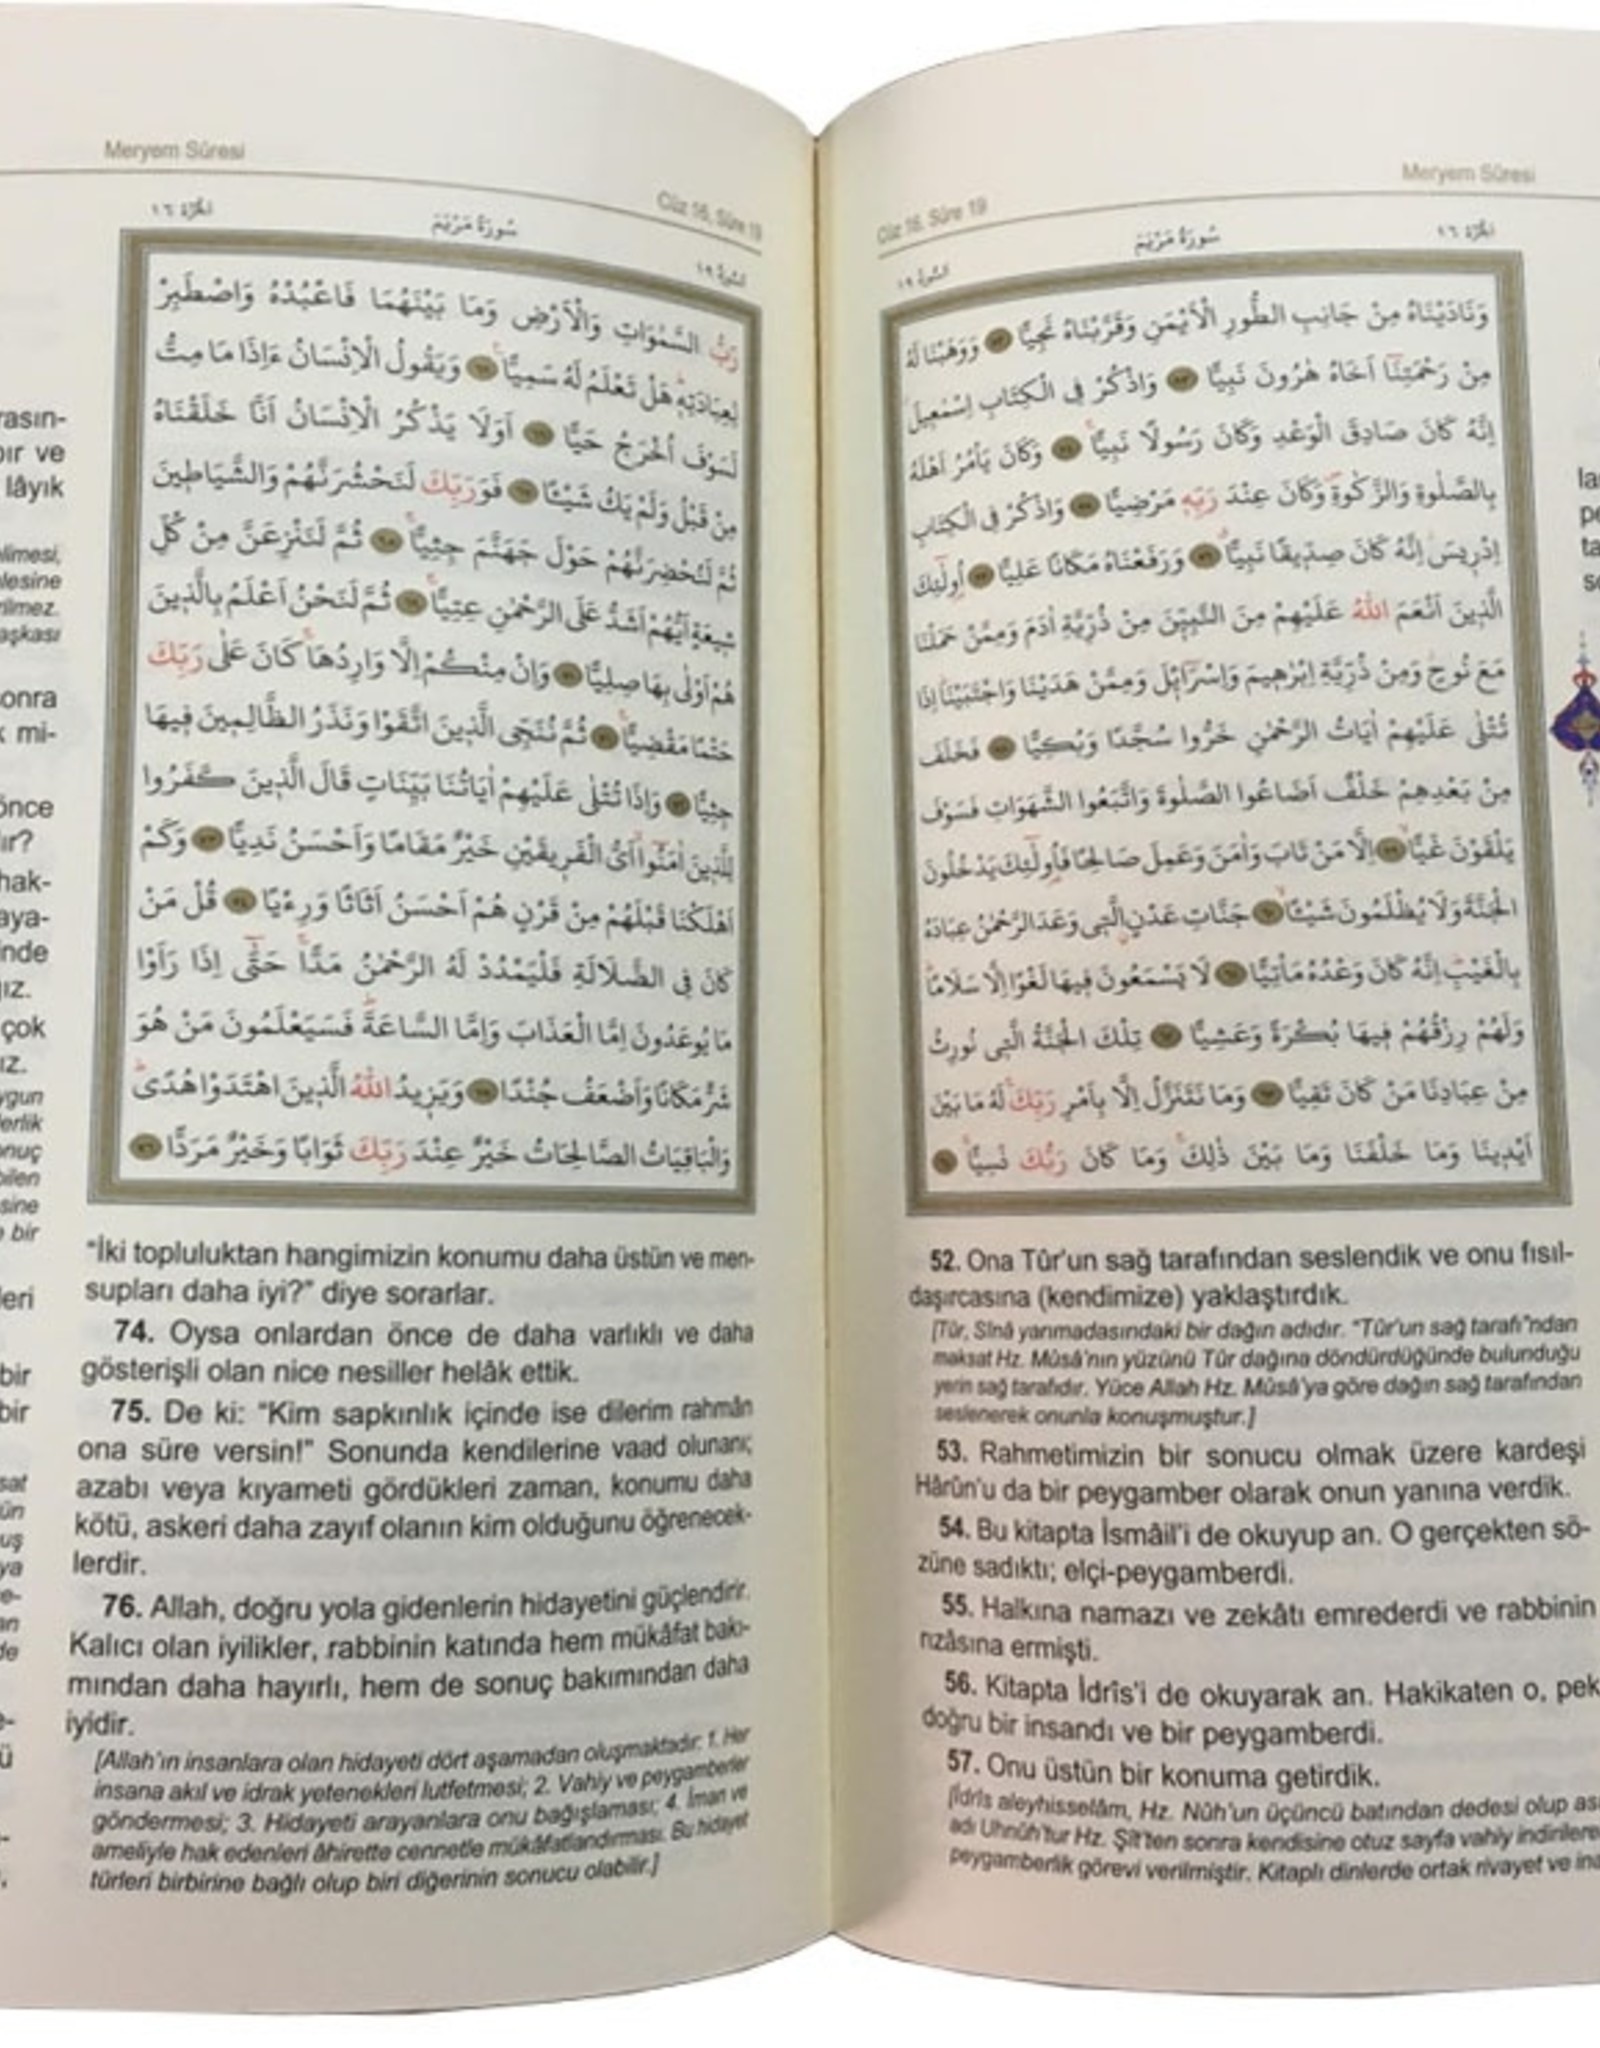 Meryem Sûresi
Cüz 16, Sûre 19
الجزء ١٦
سُورَةُ مَرْيَمَ
السورة ١٩
وَنَادَيْنَاهُ مِنْ جَانِبِ الطُّورِ الْاَيْمَنِ وَقَرَّبْنَاهُ نَجِيًّا ٥٢ وَوَهَبْنَا لَهُ
مِنْ رَحْمَتِنَٓا اَخَاهُ هٰرُونَ نَبِيًّا ٥٣ وَاذْكُرْ فِي الْكِتَابِ اِسْمٰعِيلَ
اِنَّهُ كَانَ صَادِقَ الْوَعْدِ وَكَانَ رَسُولًا نَبِيًّا ٥٤ وَكَانَ يَأْمُرُ اَهْلَهُ
بِالصَّلٰوةِ وَالزَّكٰوةِ وَكَانَ عِنْدَ رَبِّهِ مَرْضِيًّا ٥٥ وَاذْكُرْ فِي الْكِتَابِ
اِدْرِيسَ اِنَّهُ كَانَ صِدِّيقًا نَبِيًّا ٥٦ وَرَفَعْنَاهُ مَكَانًا عَلِيًّا ٥٧ اُو۬لٰٓئِكَ
الَّذِينَ اَنْعَمَ اللّٰهُ عَلَيْهِمْ مِنَ النَّبِيِّنَ مِنْ ذُرِّيَّةِ اٰدَمَ وَمِمَّنْ حَمَلْنَا
مَعَ نُوحٍ وَمِنْ ذُرِّيَّةِ اِبْرٰهِيمَ وَاِسْرَٓائِلَ وَمِمَّنْ هَدَيْنَا وَاجْتَبَيْنَا اِذَا
تُتْلٰى عَلَيْهِمْ اٰيَاتُ الرَّحْمٰنِ خَرُّوا سُجَّدًا وَبُكِيًّا ٥٨ فَخَلَفَ
مِنْ بَعْدِهِمْ خَلْفٌ اَضَاعُوا الصَّلٰوةَ وَاتَّبَعُوا الشَّهَوَاتِ فَسَوْفَ
يَلْقَوْنَ غَيًّا ٥٩ اِلَّا مَنْ تَابَ وَاٰمَنَ وَعَمِلَ صَالِحًا فَاُو۬لٰٓئِكَ يَدْخُلُونَ
الْجَنَّةَ وَلَا يُظْلَمُونَ شَيْئًا ٦٠ جَنَّاتِ عَدْنٍ الَّتِي وَعَدَ الرَّحْمٰنُ عِبَادَهُ
بِالْغَيْبِ اِنَّهُ كَانَ وَعْدُهُ مَأْتِيًّا ٦١ لَا يَسْمَعُونَ فِيهَا لَغْوًا اِلَّا سَلَامًا
وَلَهُمْ رِزْقُهُمْ فِيهَا بُكْرَةً وَعَشِيًّا ٦٢ تِلْكَ الْجَنَّةُ الَّتِي نُورِثُ
مِنْ عِبَادِنَا مَنْ كَانَ تَقِيًّا ٦٣ وَمَا نَتَنَزَّلُ اِلَّا بِاَمْرِ رَبِّكَ لَهُ مَا بَيْنَ
اَيْدِينَا وَمَا خَلْفَنَا وَمَا بَيْنَ ذٰلِكَ وَمَا كَانَ رَبُّكَ نَسِيًّا ٦٤
52. Ona Tûr'un sağ tarafından seslendik ve onu fısıl-
daşırcasına (kendimize) yaklaştırdık.
[Tûr, Sînâ yarımadasındaki bir dağın adıdır. "Tûr'un sağ tarafı"ndan
maksat Hz. Mûsâ'nın yüzünü Tûr dağına döndürdüğünde bulunduğu
yerin sağ tarafıdır. Yüce Allah Hz. Mûsâ'ya göre dağın sağ tarafından
seslenerek onunla konuşmuştur.]
53. Rahmetimizin bir sonucu olmak üzere kardeşi
Hârûn'u da bir peygamber olarak onun yanına verdik.
54. Bu kitapta İsmâil'i de okuyup an. O gerçekten sö-
züne sadıktı; elçi-peygamberdi.
55. Halkına namazı ve zekâtı emrederdi ve rabbinin
rızâsına ermişti.
56. Kitapta İdrîs'i de okuyarak an. Hakikaten o, pek
doğru bir insandı ve bir peygamberdi.
57. Onu üstün bir konuma getirdik.
[İdrîs aleyhisselâm, Hz. Nûh'un üçüncü batından dedesi olup
adı Uhnûh'tur Hz. Şît'ten sonra kendisine otuz sayfa vahiy
peygamberlik görevi verilmiştir. Kitaplı dinlerde ortak rivayet ve
Meryem Sûresi
Cüz 16, Sûre 19
الجزء ١٦
سُورَةُ مَرْيَمَ
السورة ١٩
رَبُّ السَّمٰوَاتِ وَالْاَرْضِ وَمَا بَيْنَهُمَا فَاعْبُدْهُ وَاصْطَبِرْ
لِعِبَادَتِهِ هَلْ تَعْلَمُ لَهُ سَمِيًّا ٦٥ وَيَقُولُ الْاِنْسَانُ ءَاِذَا مَا مِتُّ
لَسَوْفَ اُخْرَجُ حَيًّا ٦٦ اَوَلَا يَذْكُرُ الْاِنْسَانُ اَنَّا خَلَقْنَاهُ
مِنْ قَبْلُ وَلَمْ يَكُ شَيْئًا ٦٧ فَوَرَبِّكَ لَنَحْشُرَنَّهُمْ وَالشَّيَاطِينَ
ثُمَّ لَنُحْضِرَنَّهُمْ حَوْلَ جَهَنَّمَ جِثِيًّا ٦٨ ثُمَّ لَنَنْزِعَنَّ مِنْ كُلِّ
شِيعَةٍ اَيُّهُمْ اَشَدُّ عَلَى الرَّحْمٰنِ عِتِيًّا ٦٩ ثُمَّ لَنَحْنُ اَعْلَمُ بِالَّذِينَ
هُمْ اَوْلٰى بِهَا صِلِيًّا ٧٠ وَاِنْ مِنْكُمْ اِلَّا وَارِدُهَا كَانَ عَلٰى رَبِّكَ
حَتْمًا مَقْضِيًّا ٧١ ثُمَّ نُنَجِّي الَّذِينَ اتَّقَوْا وَنَذَرُ الظَّالِمِينَ فِيهَا
جِثِيًّا ٧٢ وَاِذَا تُتْلٰى عَلَيْهِمْ اٰيَاتُنَا بَيِّنَاتٍ قَالَ الَّذِينَ كَفَرُوا
لِلَّذِينَ اٰمَنُٓوا اَيُّ الْفَرِيقَيْنِ خَيْرٌ مَقَامًا وَاَحْسَنُ نَدِيًّا ٧٣ وَكَمْ
اَهْلَكْنَا قَبْلَهُمْ مِنْ قَرْنٍ هُمْ اَحْسَنُ اَثَاثًا وَرِءْيًا ٧٤ قُلْ مَنْ
كَانَ فِي الضَّلَالَةِ فَلْيَمْدُدْ لَهُ الرَّحْمٰنُ مَدًّا حَتّٰٓى اِذَا رَاَوْا
مَا يُوعَدُونَ اِمَّا الْعَذَابَ وَاِمَّا السَّاعَةَ فَسَيَعْلَمُونَ مَنْ هُوَ
شَرٌّ مَكَانًا وَاَضْعَفُ جُنْدًا ٧٥ وَيَزِيدُ اللّٰهُ الَّذِينَ اهْتَدَوْا هُدًى
وَالْبَاقِيَاتُ الصَّالِحَاتُ خَيْرٌ عِنْدَ رَبِّكَ ثَوَابًا وَخَيْرٌ مَرَدًّا ٧٦
"İki topluluktan hangimizin konumu daha üstün ve men-
supları daha iyi?" diye sorarlar.
74. Oysa onlardan önce de daha varlıklı ve daha
gösterişli olan nice nesiller helâk ettik.
75. De ki: "Kim sapkınlık içinde ise dilerim rahmân
ona süre versin!" Sonunda kendilerine vaad olunanı;
azabı veya kıyameti gördükleri zaman, konumu daha
kötü, askeri daha zayıf olanın kim olduğunu öğrenecek-
lerdir.
76. Allah, doğru yola gidenlerin hidayetini güçlendirir.
Kalıcı olan iyilikler, rabbinin katında hem mükâfat bakı-
mından daha hayırlı, hem de sonuç bakımından daha
iyidir.
[Allah'ın insanlara olan hidayeti dört aşamadan oluşmaktadır: 1. Her
insana akıl ve idrak yetenekleri lutfetmesi; 2. Vahiy ve peygamberler
göndermesi; 3. Hidayeti arayanlara onu bağışlaması; 4. İman ve
ameliyle hak edenleri âhirette cennetle mükâfatlandırması. Bu hidayet
türleri birbirine bağlı olup biri diğerinin sonucu olabilir.]